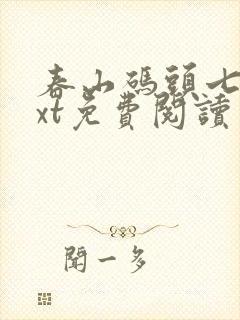 春山碼頭七
xt免費閱讀
聞一多